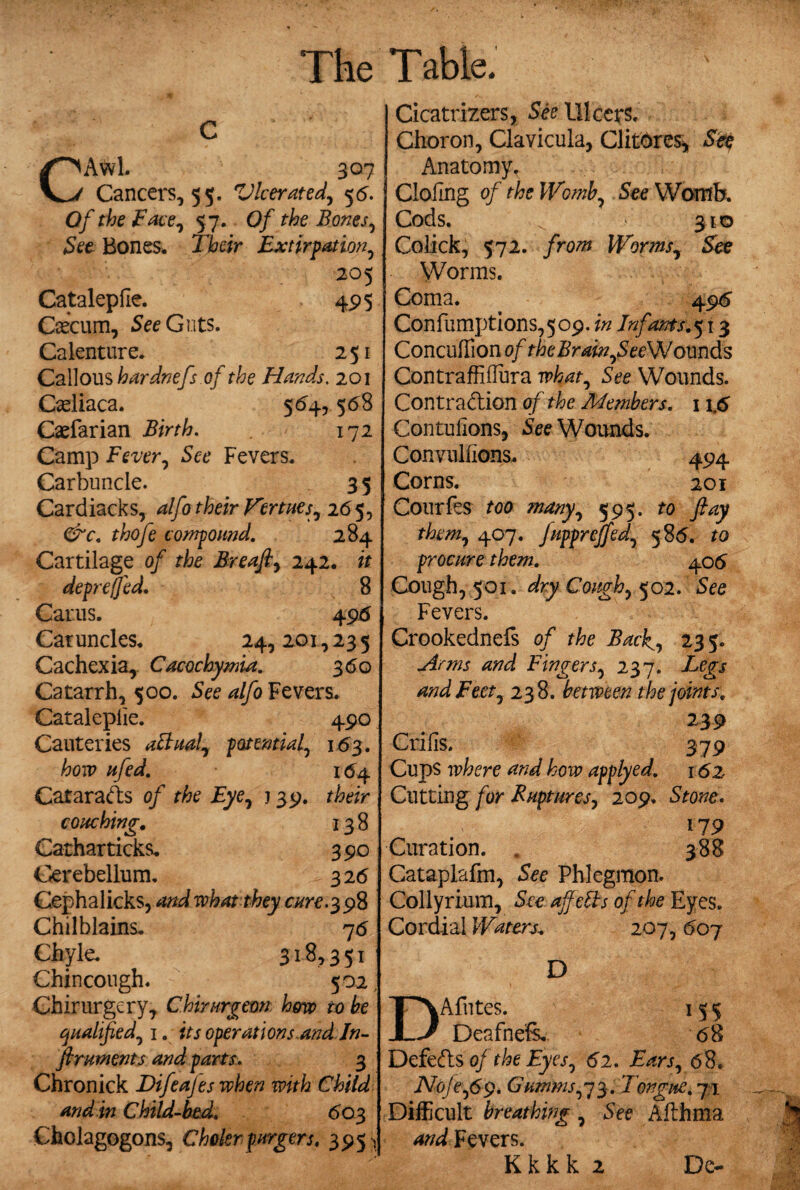 The Table.
C
CAwl. 307
Cancers, 55. Vlcerated, 56.
Of the Face, 57. Of the Bones,
See Bones. Their Extirpation,
205
Catalepſie. 495
Cæcum, See Guts.
Calenture. 251
Callous hardneſs of the Hands. 201
Cæliaca. 564, 568
Cæſarian Birth. 172
Camp Fever, See Fevers.
Carbuncle. 35
Cardiacks, alſo their Vertues, 265,
&c. thoſe compound. 284
Cartilage of the Breaſt, 242. it
depreſſed. 8
Carus. 496
Caruncles. 24, 201, 235
Cachexia, Cacochymia. 360
Catarrh, 500. See alſo Fevers.
Catalepſie. 490
Cauteries actual, potential, 163.
how uſed. 164
Cataracts of the Eye, 139. their
couching. 138
Catharticks. 390
Cerebellum. 326
Cephalicks, and what they cure. 398
Chilblains. 76
Chyle. 318, 351
Chincough. 502
Chirurgery, Chirurgeon how to be
qualified, 1. its operations and In-
ſtruments and parts. 3
Chronick Diſeaſes when with Child
and in Child-bed. 603
Cholagogons, Choler purgers. 395
Cicatrizers, See Ulcers.
Choron, Clavicula, Clitores, See
Anatomy.
Cloſing of the Womb, See Womb.
Cods. 310
Colick, 572. from Worms, See
Worms.
Coma. 496
Conſumptions, 509. in Infants. 513
Concuſſion of the Brain, See Wounds
Contraffiſſura what, See Wounds.
Contraction of the Members. 116
Contuſions, See Wounds.
Convulſions. 494
Corns. 201
Courſes too many, 595. to ſtay
them, 407. ſuppreſſed, 586. to
procure them. 406
Cough, 501. dry Cough, 502. See
Fevers.
Crookedneſs of the Back, 235.
Arms and Fingers, 237. Legs
and Feet, 238. between the joints.
239
Criſis. 379
Cups where and how applyed. 162
Cutting for Ruptures, 209. Stone.
179
Curation. 388
Cataplaſm, See Phlegmon.
Collyrium, See affects of the Eyes.
Cordial Waters. 207, 607
D
DAſutes. 155
Deafneſs. 68
Defects of the Eyes, 62. Ears, 68.
Noſe, 69. Gumms, 73. Tongue. 71
Difficult breathing, See Aſthma
and Fevers.
Kkkk 2 De-